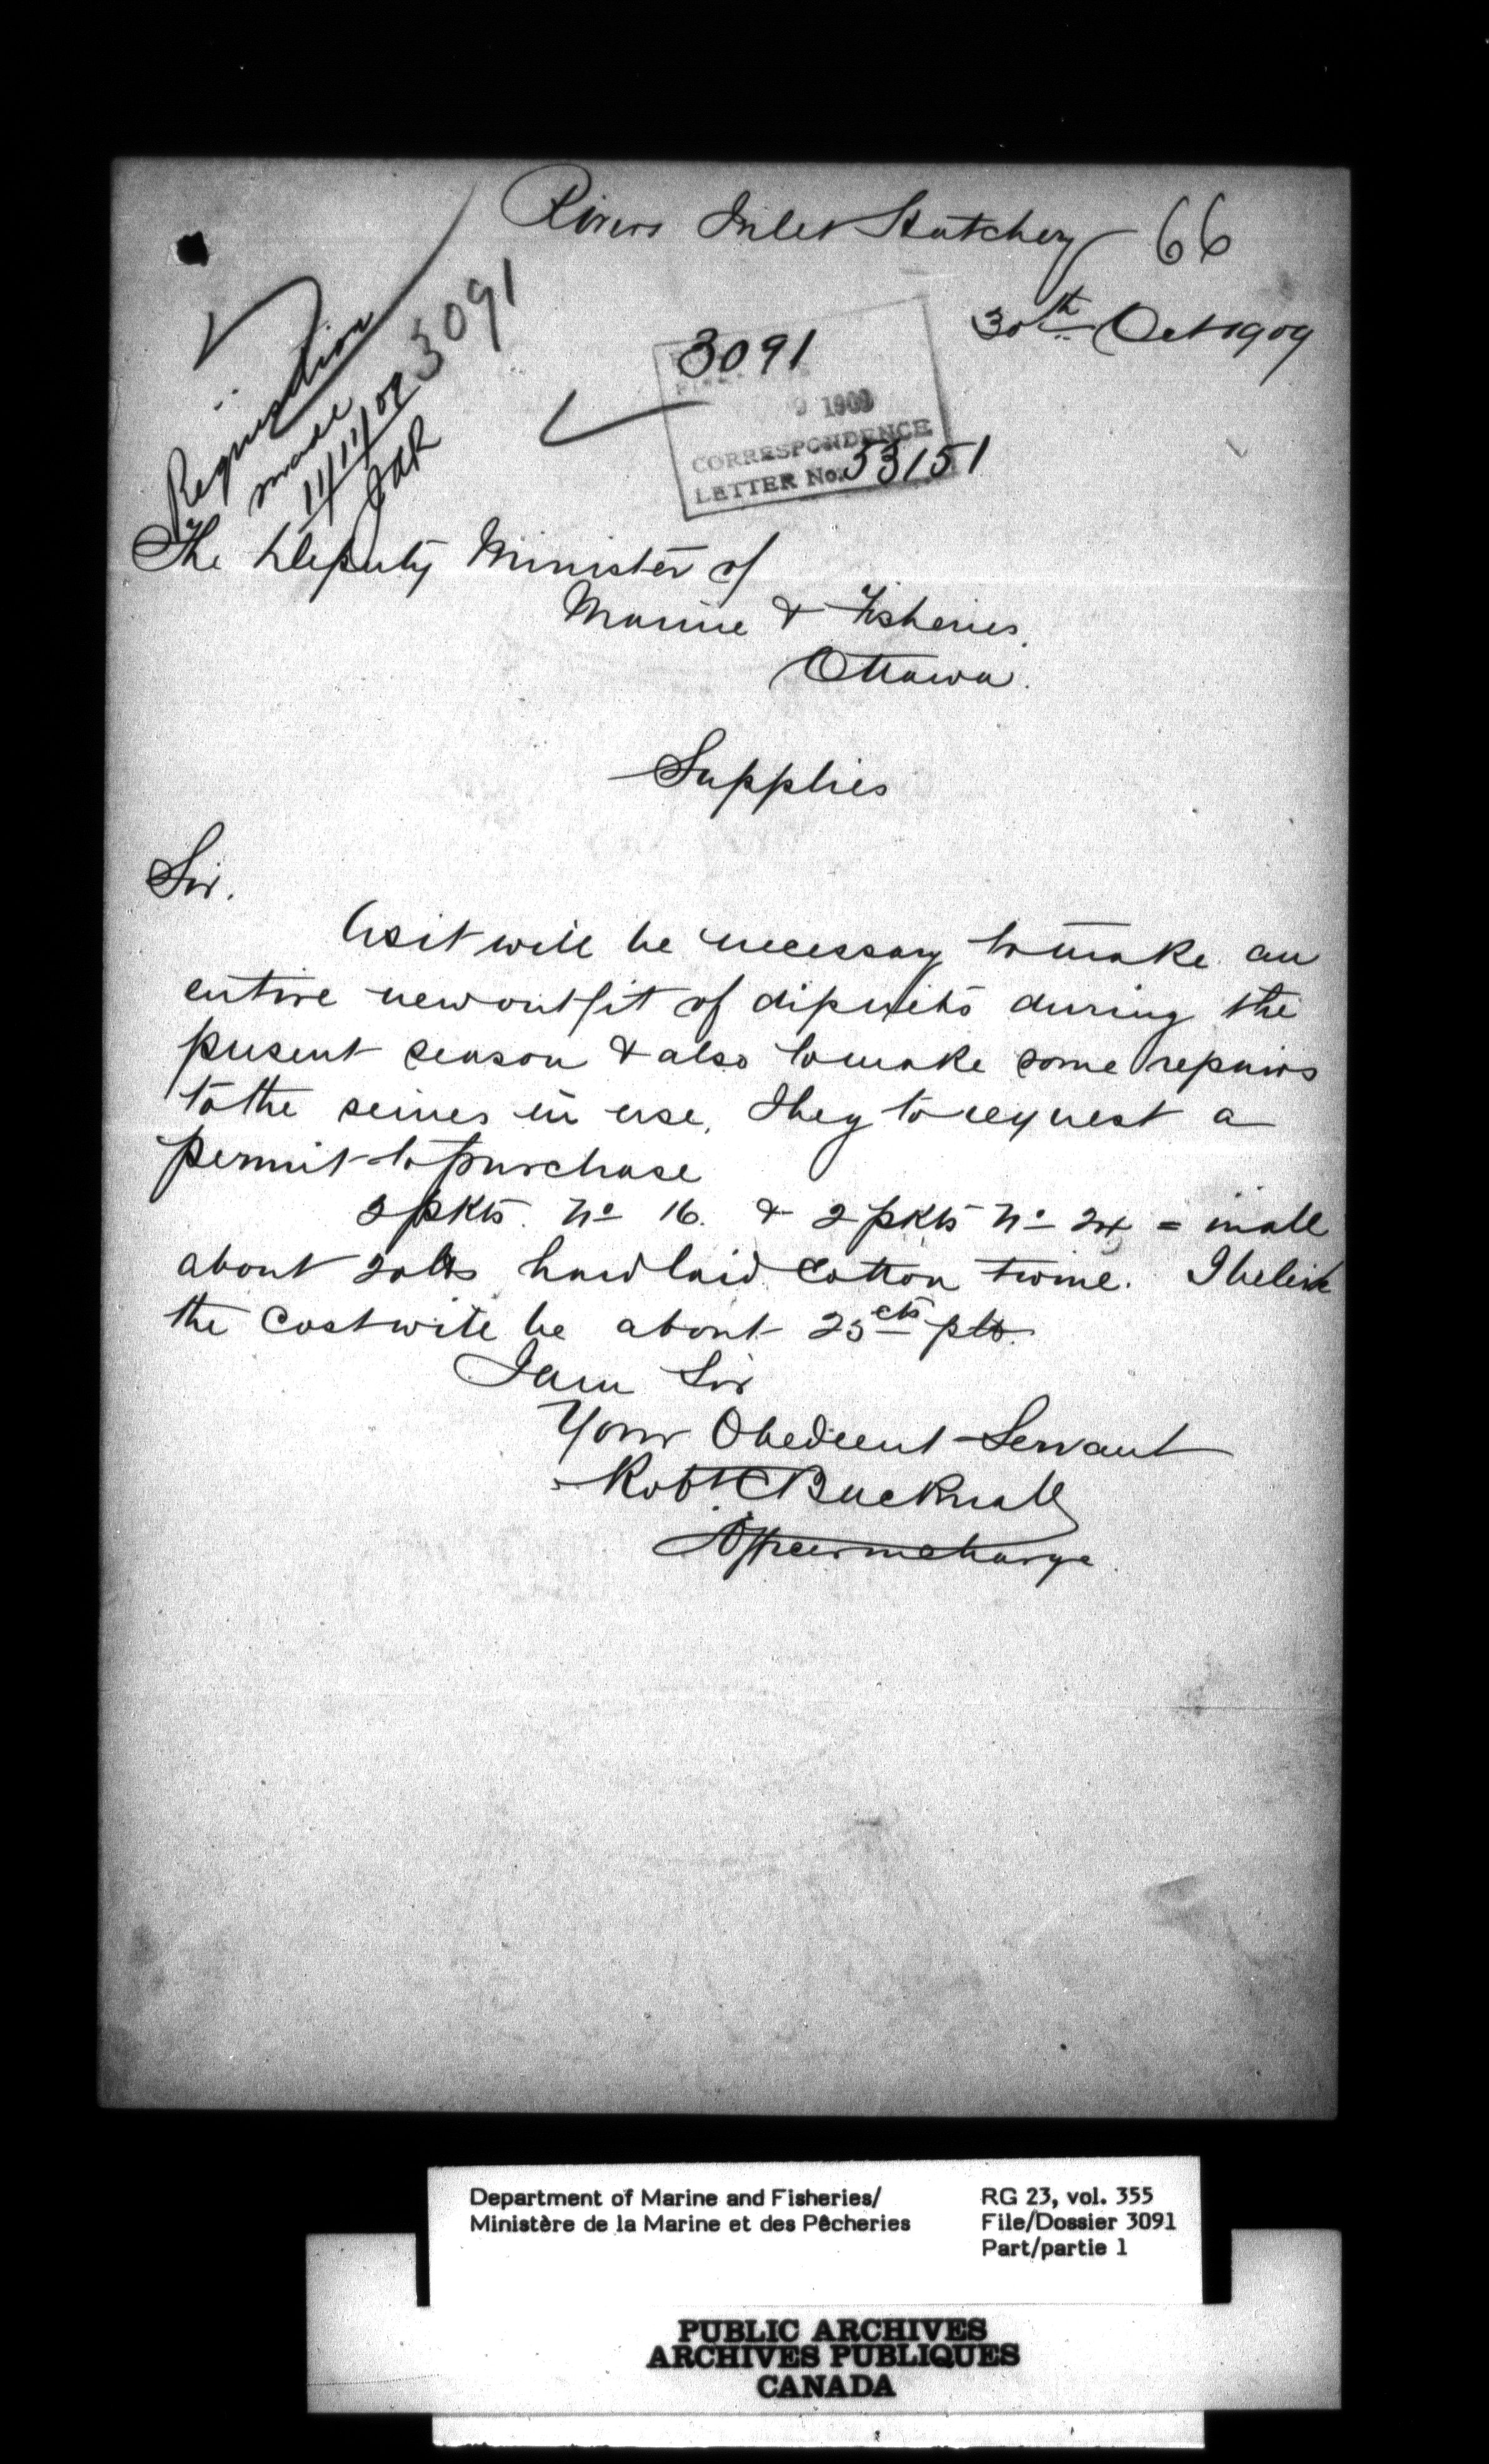 Rivers Inlet Hatchery 66
30th Oct 1909
Requisition
made
11/11/09
JAR
3091
3091
9 1909
CORRESPONDENCE
LETTER No. 53151
The Deputy Minister of
Marine & Fisheries.
Ottawa.
Supplies
Sir.
As it will be necessary to make an
entire new outfit of dipnets during the
present season & also to make some repairs
to the seines in use, I beg to request a
permit to purchase
2 pkts. No 16. & 2 pkts No 24 = in all
about 20 lbs hard laid Cotton twine. I believe
the Cost will be about 25 cts p lb.
I am Sir
Your Obedient Servant
Robt C Bucknall
Officer in charge.
Department of Marine and Fisheries/
Ministère de la Marine et des Pêcheries
RG 23, vol. 355
File/Dossier 3091
Part/partie 1
PUBLIC ARCHIVES
ARCHIVES PUBLIQUES
CANADA